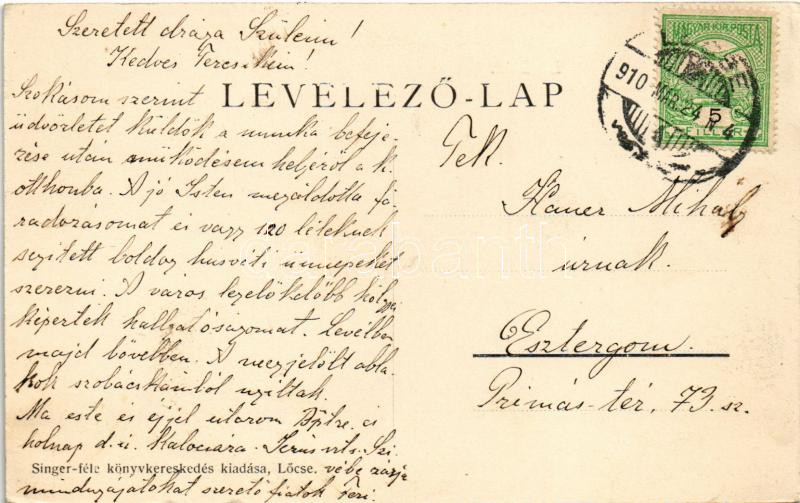 Szeretett drága Szüleim!
Kedves Tercsikém!
LEVELEZŐ-LAP
Szokásom szerint
üdvözletet küldök a munka befeje-
zése után működésem helyéről a k.
otthonba. A jó Isten megáldotta fá-
radozásomat és vagy 120 léleknek
segített boldog husvéti ünnepeket
szerezni. A város legelőkelőbb hölgyei
képezték hallgatóságomat. Levélben
majd bővebben. A megjelölt abla-
kok szobácskámból nyíltak.
Ma este és éjjel utazom Bptre. és
holnap d. u. Kalocsára.
Singer-féle könyvkereskedés kiadása, Lőcse.
mindnyájatokat szerető fiatok Feri.
Tek.
Hauer Mihály
úrnak.
Esztergom.
Primás-tér, 73. sz.
MAGYAR KIR. POSTA
5
FILLÉR
LŐCSE
910 MÁR. 24